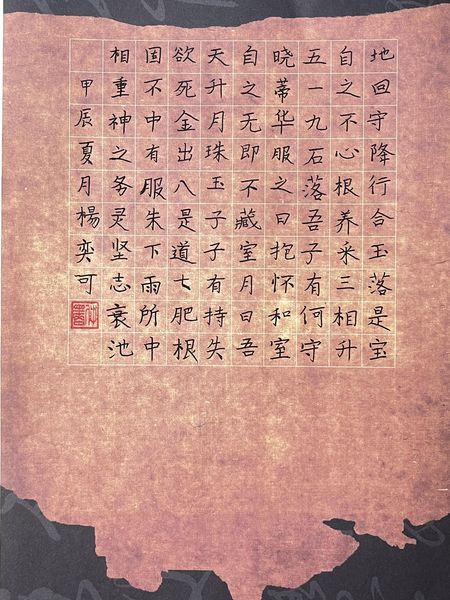 地回守降行合玉落是宝
自之不心根养采三相升
五一九石落吾子有何守
晓蒂华服之日抱怀和室
自之无即不藏室月日吾
天升月珠玉子子有持失
欲死金出八是道七肥根
固不中有服朱下雨所中
相重神之务灵坚志衰池
甲辰夏月楊奕可